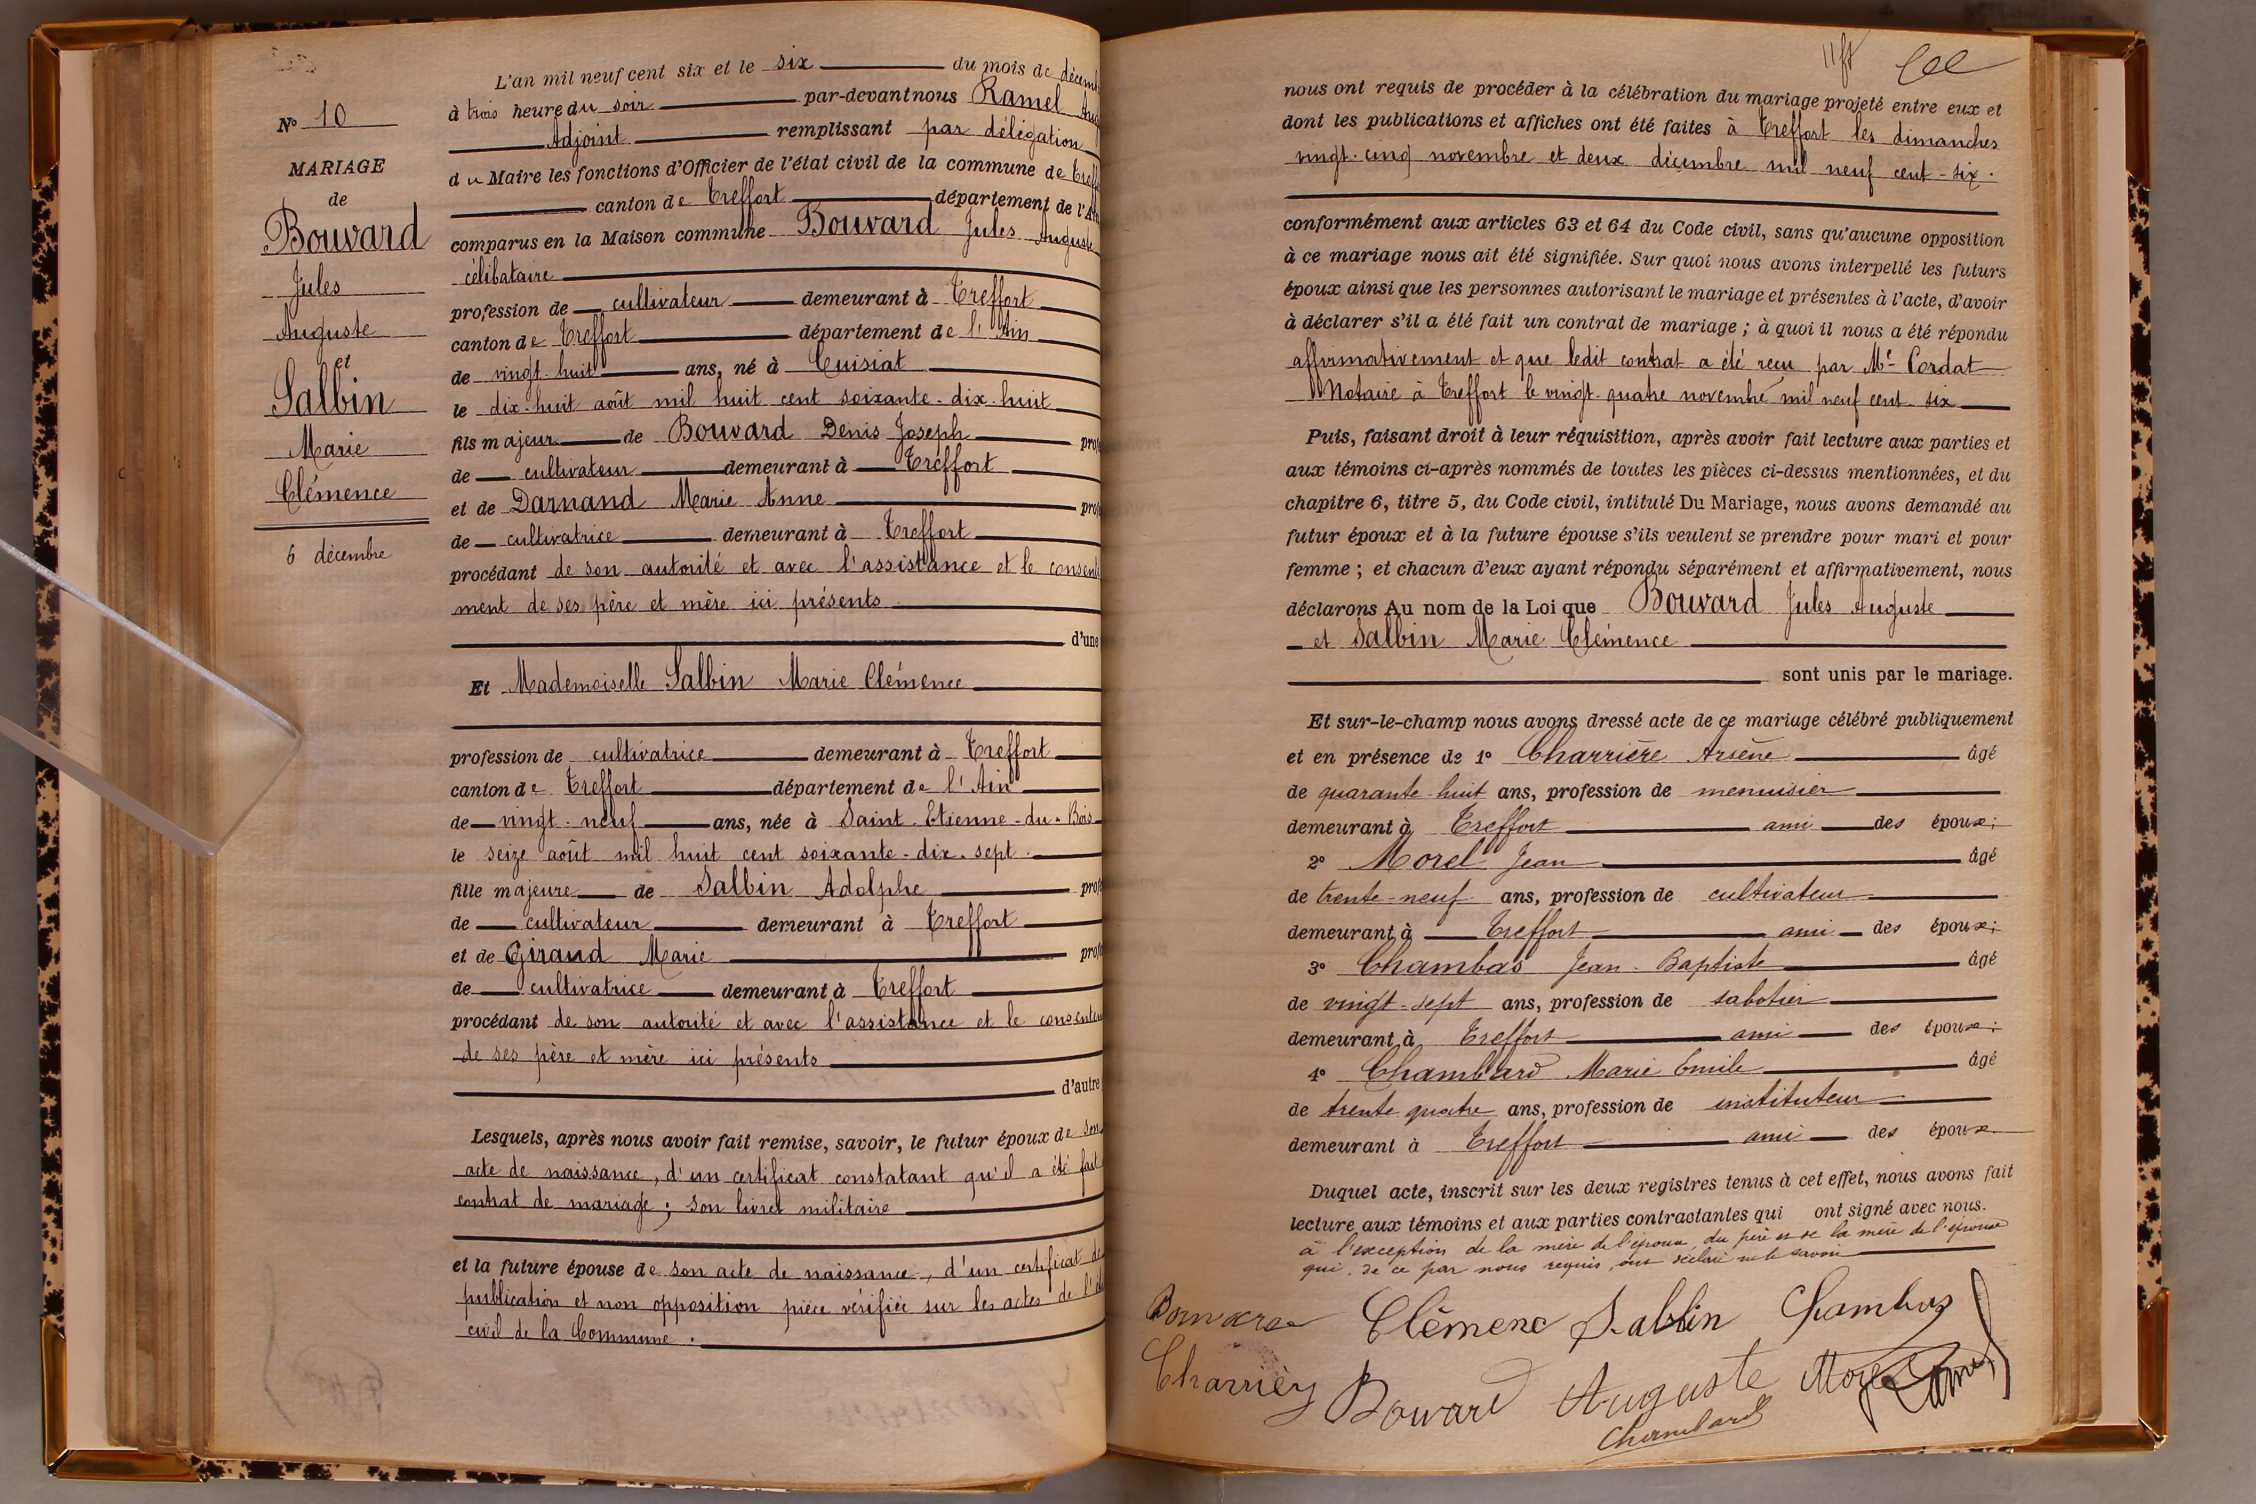 N° 10
MARIAGE
de
Bouvard
Jules
Auguste
et
Salbin
Marie
Clémence
6 décembre
L'an mil neuf cent six et le six du mois de décemb
à trois heure du soir par-devant nous Ramel Aug
Adjoint remplissant par délégation
du Maire les fonctions d'Officier de l'état civil de la commune de Treff
canton de Treffort département de l'Ain
comparus en la Maison commune Bouvard Jules Auguste
célibataire
profession de cultivateur demeurant à Treffort
canton de Treffort département de l'Ain
de vingt-huit ans, né à Cuisiat
le dix-huit août mil huit cent soixante-dix-huit
fils majeur de Bouvard Denis Joseph prof
de cultivateur demeurant à Treffort
et de Darnand Marie Anne prof
de cultivatrice demeurant à Treffort
procédant de son autorité et avec l'assistance et le consente
ment de ses père et mère ici présents
d'une
Et Mademoiselle Salbin Marie Clémence
profession de cultivatrice demeurant à Treffort
canton de Treffort département de l'Ain
de vingt-neuf ans, née à Saint-Etienne-du-Bois
le seize août mil huit cent soixante-dix-sept.
fille majeure de Salbin Adolphe prof
de cultivateur demeurant à Treffort
et de Giraud Marie prof
de cultivatrice demeurant à Treffort
procédant de son autorité et avec l'assistance et le consentem
de ses père et mère ici présents
d'autre
Lesquels, après nous avoir fait remise, savoir, le futur époux de son
acte de naissance, d'un certificat constatant qu'il a été fait
contrat de mariage; son livret militaire
et la future épouse de son acte de naissance, d'un certificat de
publication et non opposition pièce vérifiée sur les actes de l'ét
civil de la Commune.
11ft
nous ont requis de procéder à la célébration du mariage projeté entre eux et
dont les publications et affiches ont été faites à Treffort les dimanches
vingt-cinq novembre et deux décembre mil neuf cent-six.
conformément aux articles 63 et 64 du Code civil, sans qu'aucune opposition
à ce mariage nous ait été signifiée. Sur quoi nous avons interpellé les futurs
époux ainsi que les personnes autorisant le mariage et présentes à l'acte, d'avoir
à déclarer s'il a été fait un contrat de mariage ; à quoi il nous a été répondu
affirmativement et que ledit contrat a été reçu par Me Cordat
Notaire à Treffort le vingt-quatre novembre mil neuf cent six
Puis, faisant droit à leur réquisition, après avoir fait lecture aux parties et
aux témoins ci-après nommés de toutes les pièces ci-dessus mentionnées, et du
chapitre 6, titre 5, du Code civil, intitulé Du Mariage, nous avons demandé au
futur époux et à la future épouse s'ils veulent se prendre pour mari et pour
femme ; et chacun d'eux ayant répondu séparément et affirmativement, nous
déclarons Au nom de la Loi que Bouvard Jules Auguste
et Salbin Marie Clémence
sont unis par le mariage.
Et sur-le-champ nous avons dressé acte de ce mariage célébré publiquement
et en présence de 1° Charrière Arsène âgé
de quarante-huit ans, profession de menuisier
demeurant à Treffort ami des époux;
2° Morel Jean âgé
de trente-neuf ans, profession de cultivateur
demeurant à Treffort ami des époux;
3° Chambas Jean-Baptiste âgé
de vingt-sept ans, profession de sabotier
demeurant à Treffort ami des époux;
4° Chambard Marie Emile âgé
de trente quatre ans, profession de instituteur
demeurant à Treffort ami des époux
Duquel acte, inscrit sur les deux registres tenus à cet effet, nous avons fait
lecture aux témoins et aux parties contractantes qui ont signé avec nous.
à l'exception de la mère de l'époux, du père et de la mère de l'épouse
qui, de ce par nous requis, ont déclaré ne le savoir
Bouvard Clémenc Salbin Chambas
Charrièr Bouvard Auguste Morel Ramel
Chambard